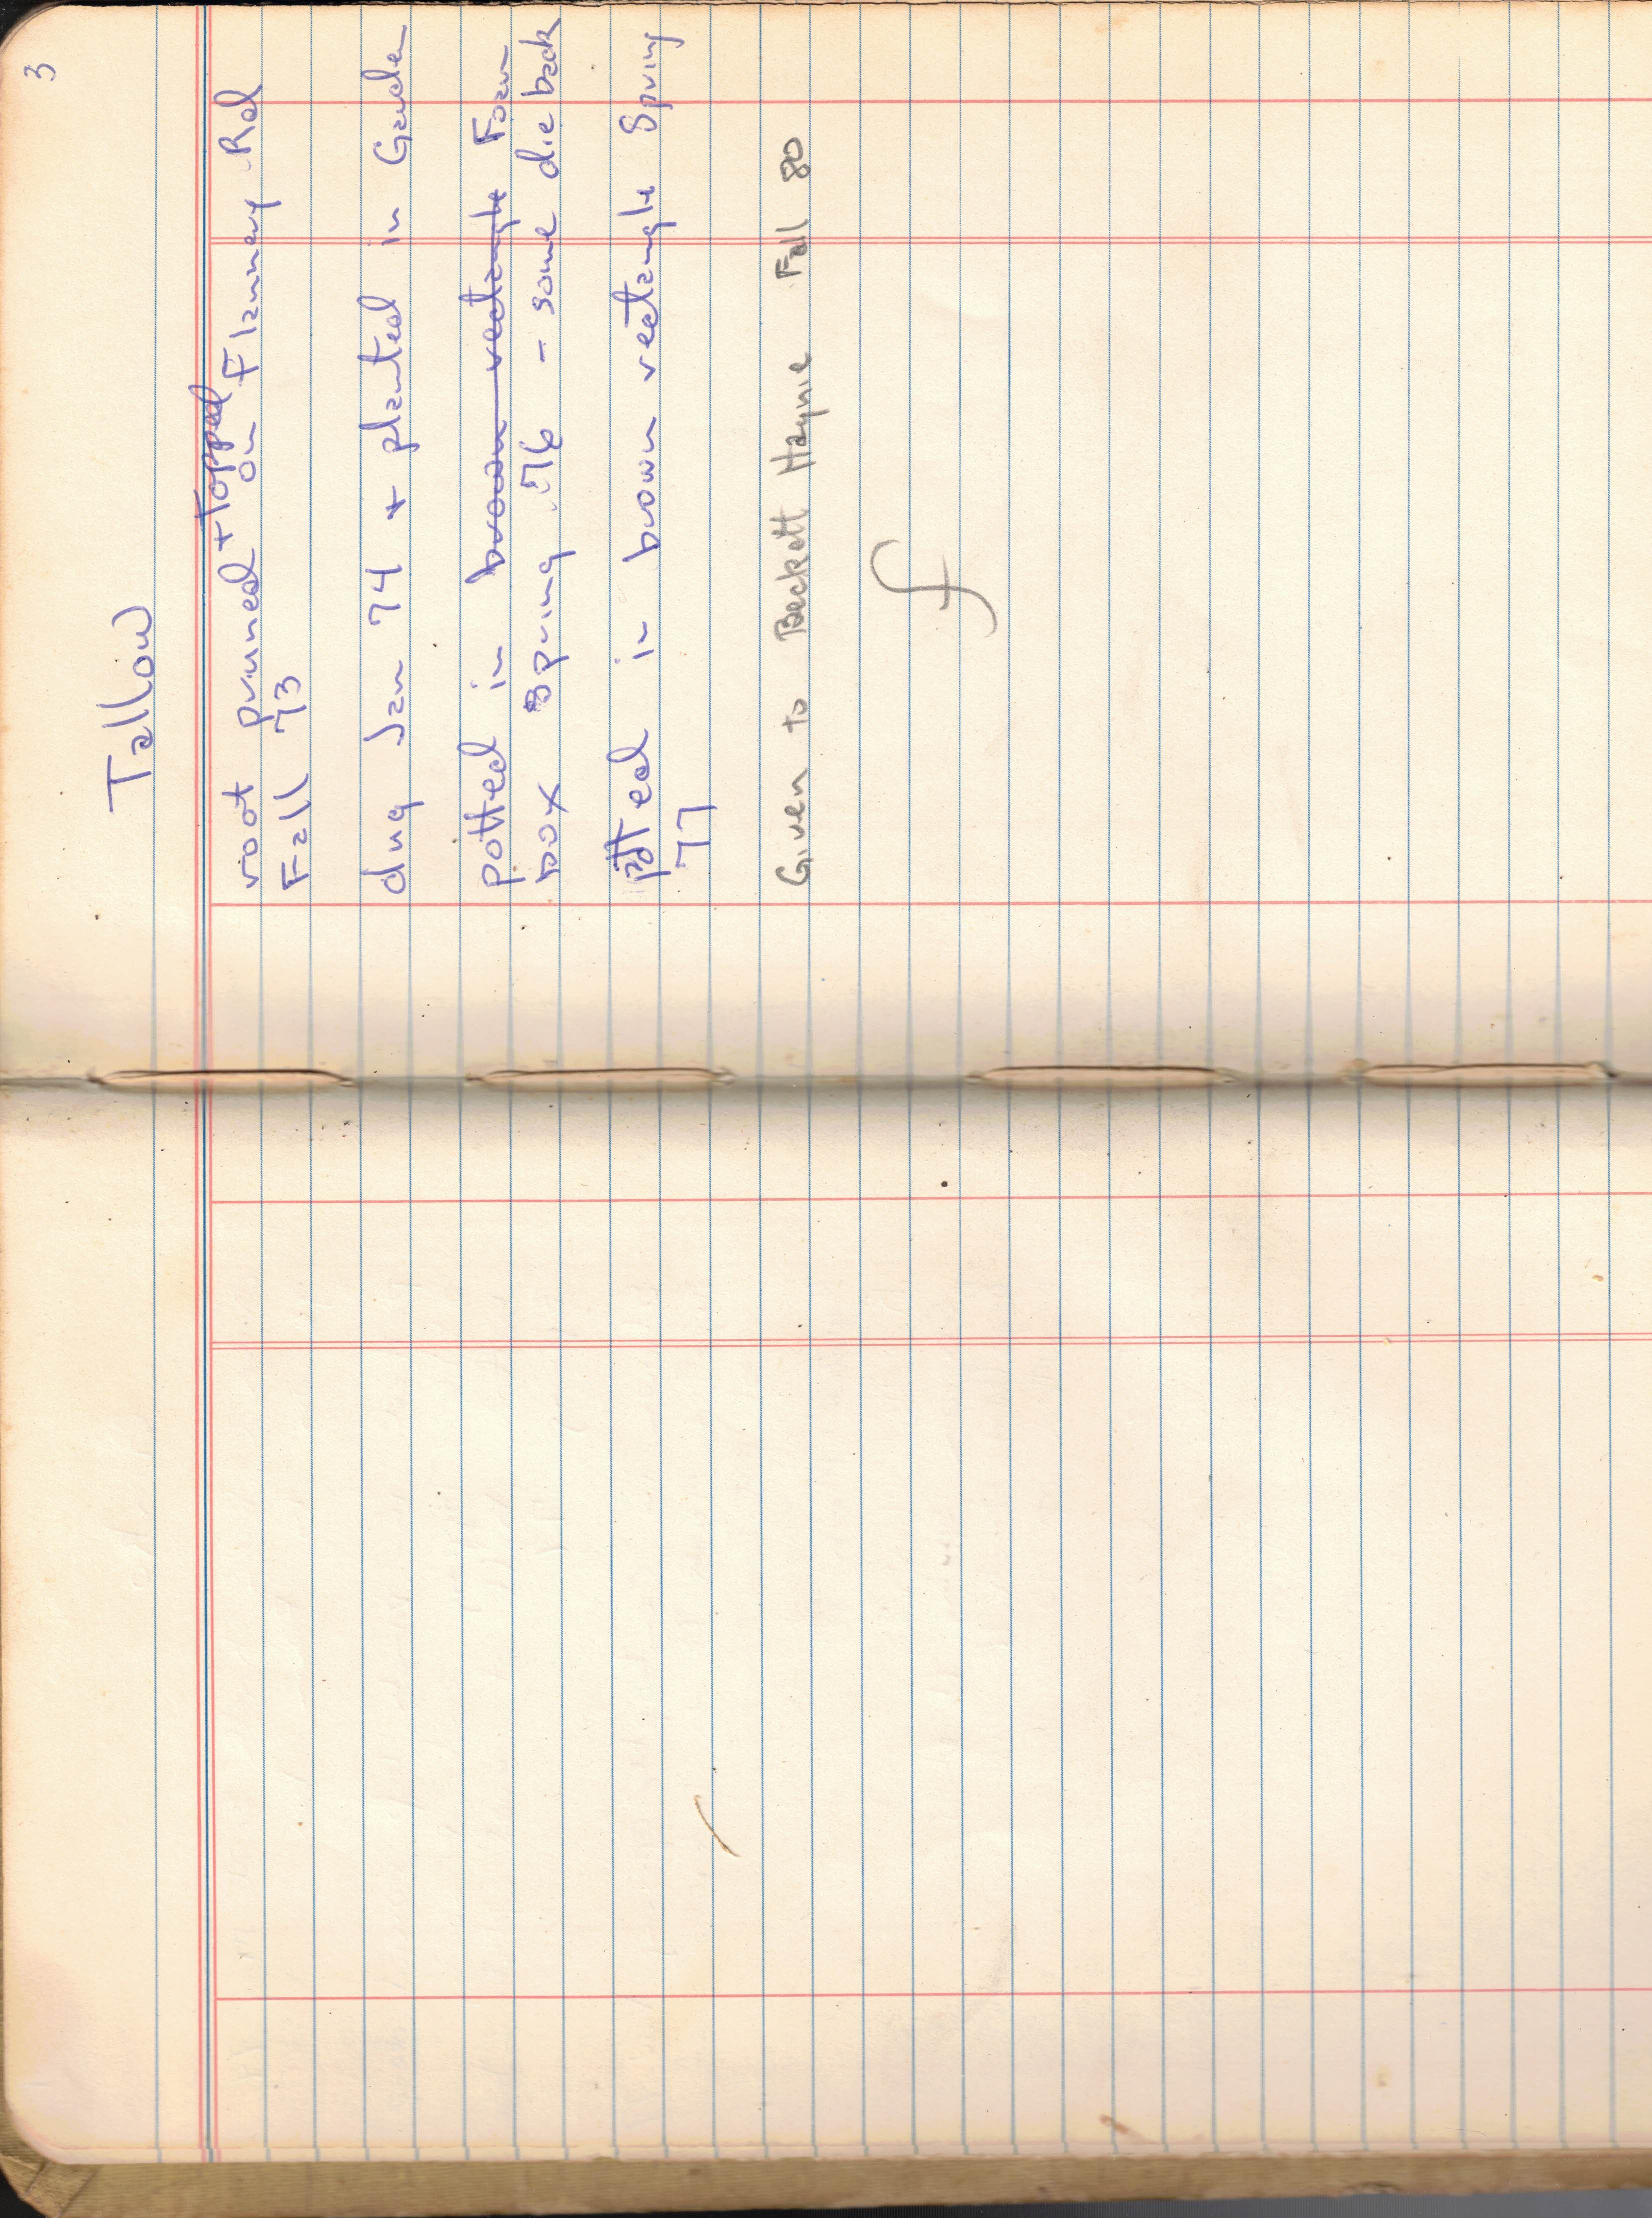 3
Tallow
+ Topped
root pruned on Flannery Rd
Fall 73
dug Jan 74 + planted in Garden
potted in brown rectangle Foam
box Spring 76 - some die back
potted in brown rectangle Spring
77
Given to Beckett Haynie Fall 80
f